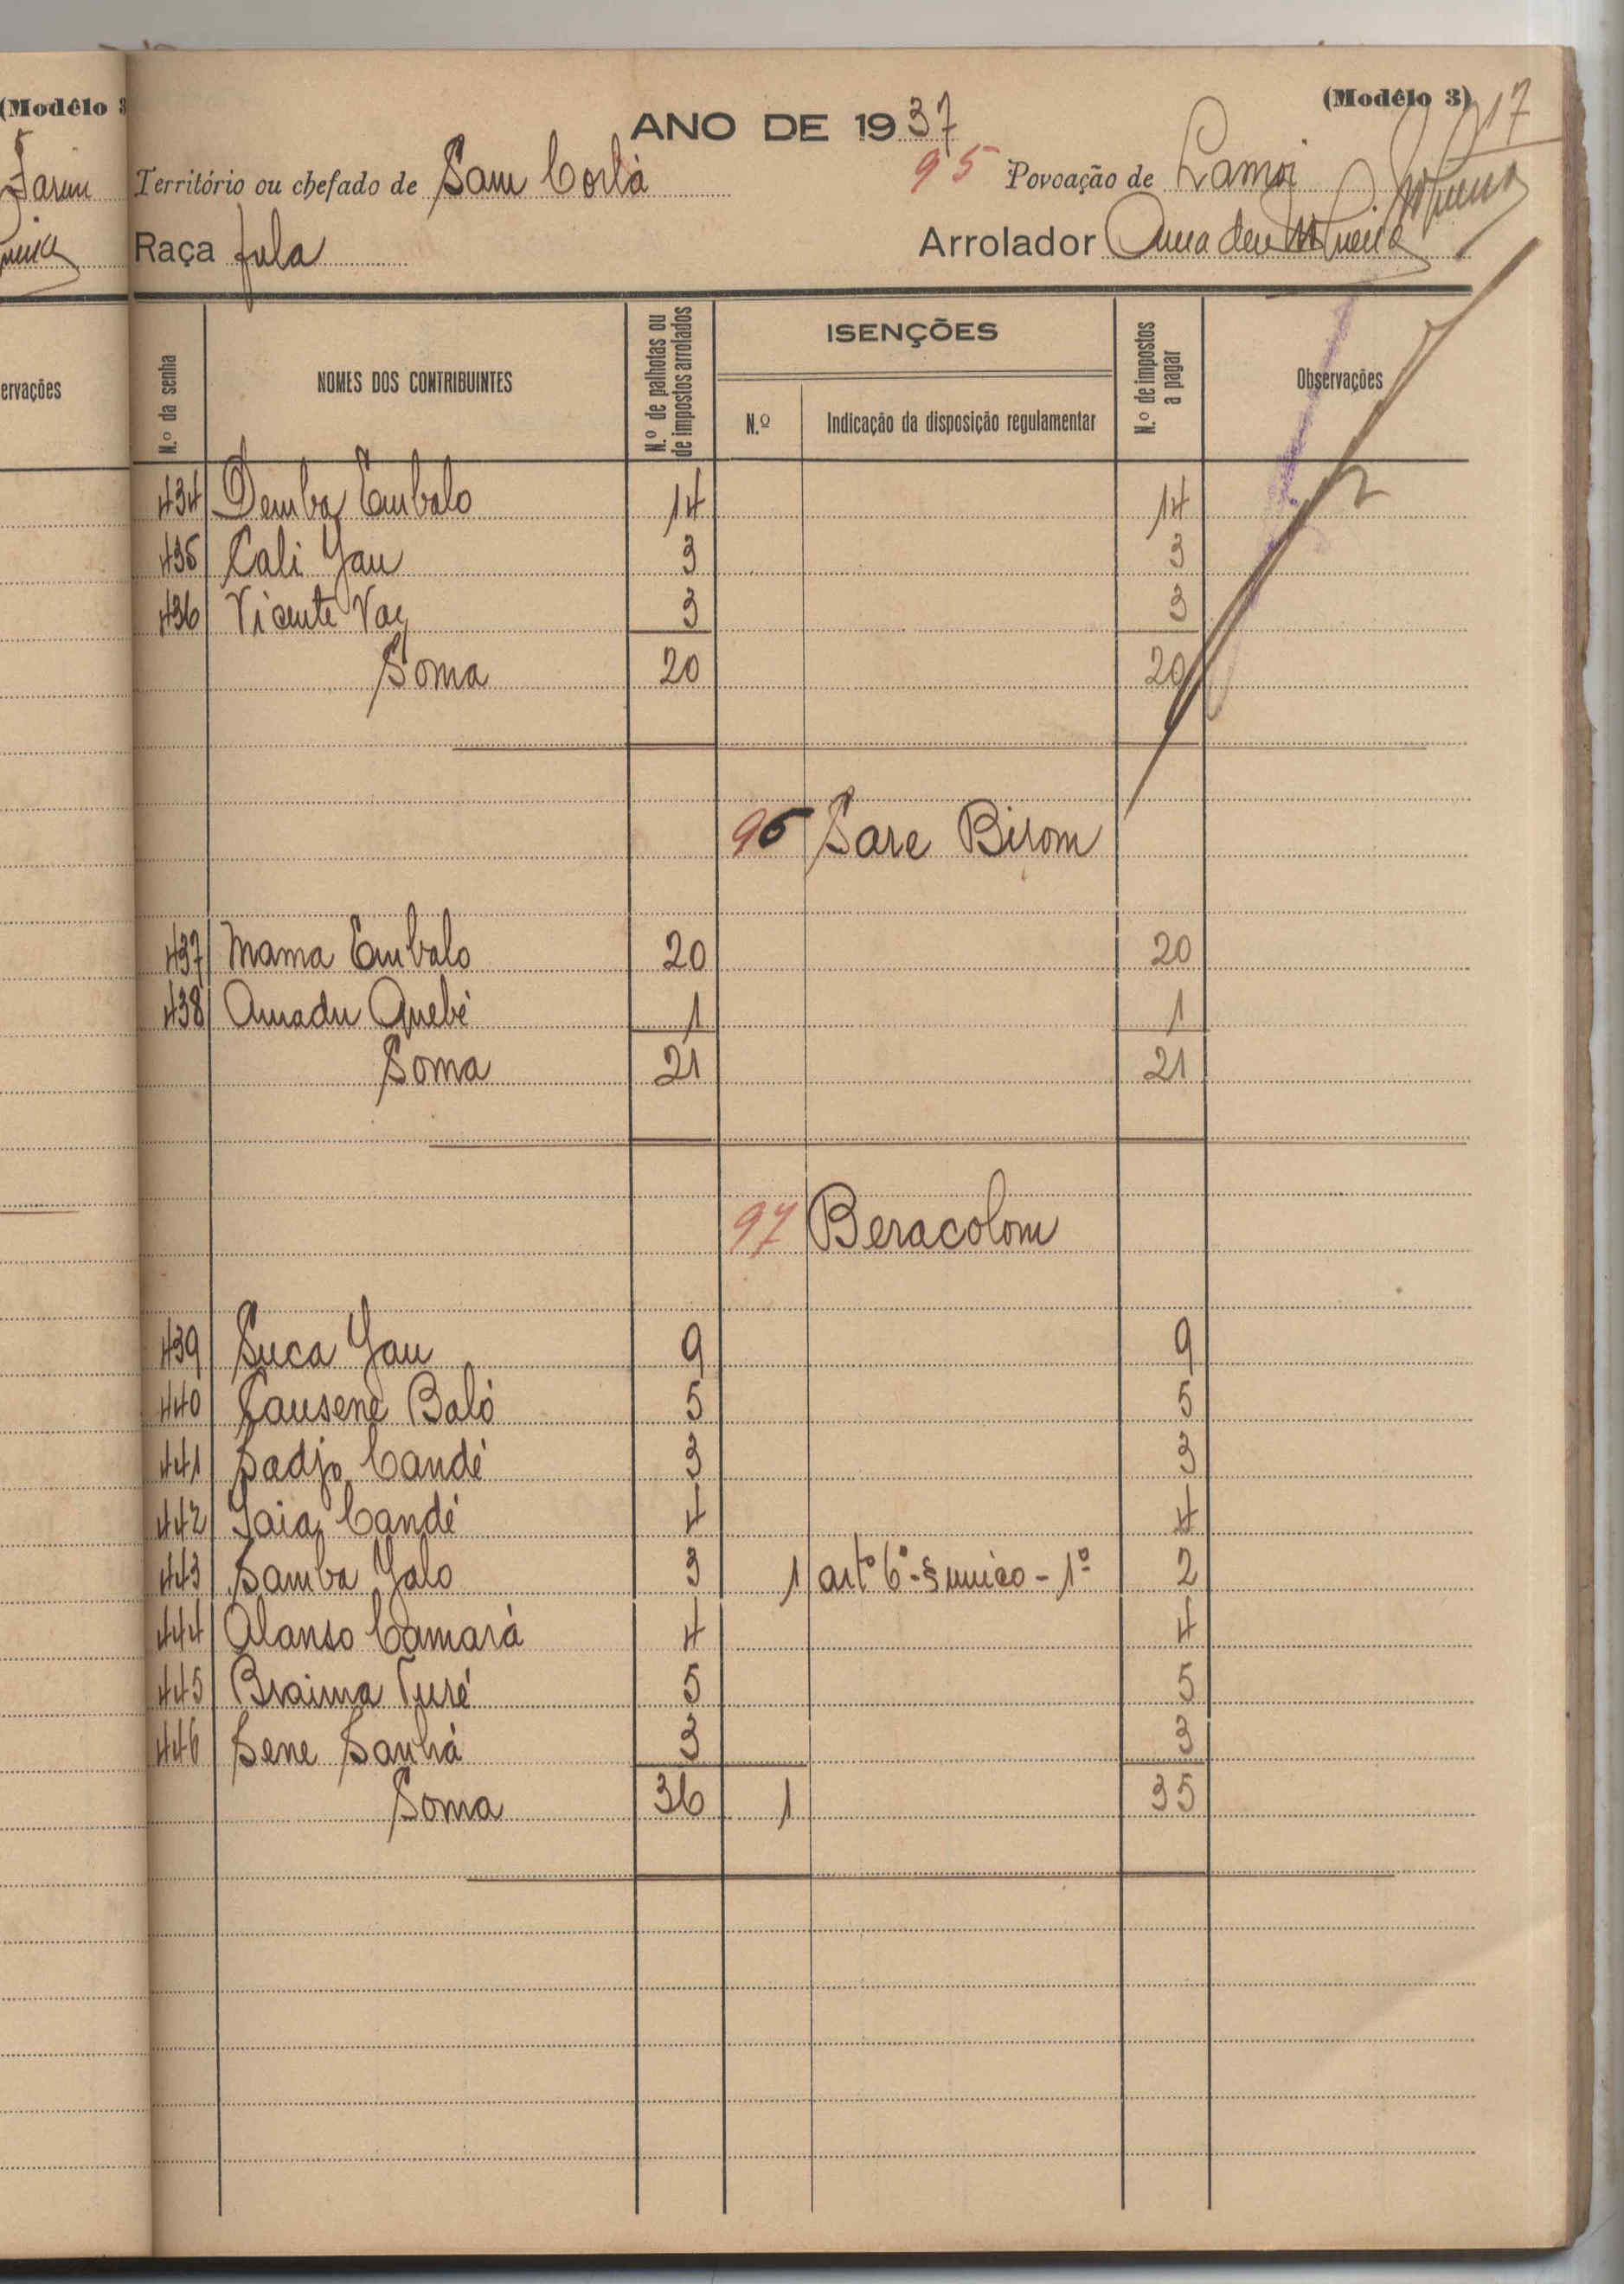 (Modêlo 3
Farim
ervações
(Modêlo 3)
17
ANO DE 1937
Território ou chefado de Sam Corlà 95 Povoação de Lamoi
Raça fula Arrolador
N.º da senha NOMES DOS CONTRIBUINTES N.º de palhotas ou de impostos arrolados ISENÇÕES N.º de impostos a pagar Observações
N.º Indicação da disposição regulamentar
434 Demba Embalo 14 14
435 Cali Jau 3 3
436 Vicente Vaz 3 3
Soma 20 20
96 Sare Birom
437 Mama Embalo 20 20
438 Amadu Quebé 1 1
Soma 21 21
97 Beracolom
439 Suca Jau 9 9
440 Lausene Baló 5 5
441 Sadjo Candé 3 3
442 Jaia Candé 4 4
443 Samba Jalo 3 1 artº 6º - § unico - 1º 2
444 Alanso Camará 4 4
445 Braima Turé 5 5
446 Sene Sanhá 3 3
Soma 36 1 35